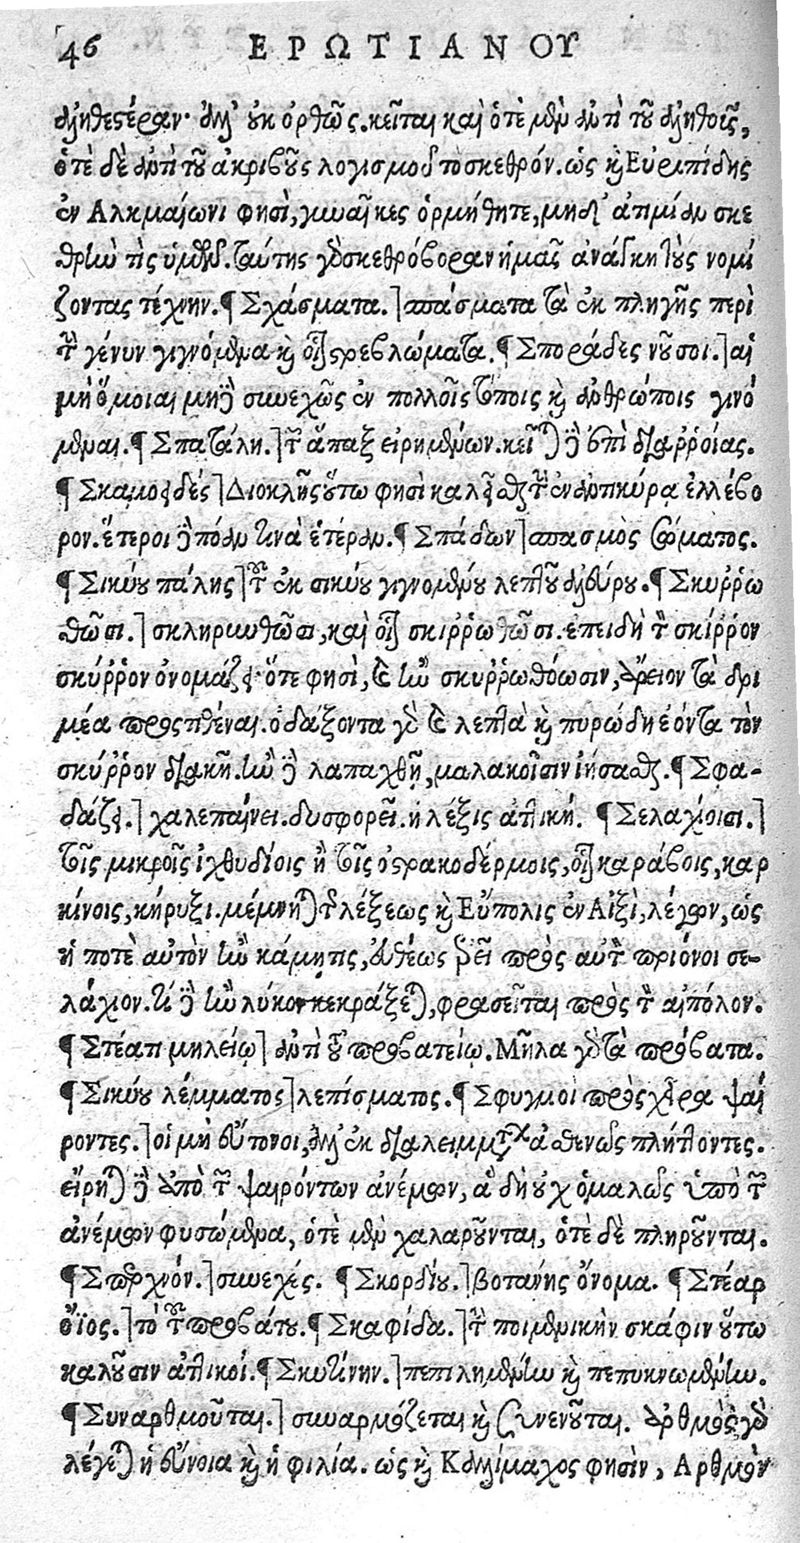 46 ΕΡΩΤΙΑΝΟΥ
ἀληθεστέραν· ἀλλ' οὐκ ὀρθῶς. κεῖται καὶ ὁτὲ μὲν ἀντὶ τοῦ ἀληθοῦς,
ὁτὲ δὲ ἀντὶ τοῦ ἀκριβοῦς λογισμοῦ τὸ σκεθρόν. ὡς καὶ Εὐριπίδης
ἐν Ἀλκμαίωνι φησὶ, γυναῖκες ὁρμήθητε, μηδ' ἀτιμίαν σκε
θρὴν τὶς ὑμῶν. ταύτης γὰρ σκεθρὸς ὁρᾶν ἡμᾶς ἀνάγκη τοὺς νομί
ζοντας τέχνην. ¶ Σχάσματα.] σπάσματα τὰ ἐκ πληγῆς περὶ
τὴν γένυν γιγνόμενα καὶ οἷον στρεβλώματα. ¶ Σποράδες νοῦσοι.] αἱ
μὴ ὅμοιαι μηδὲ συνεχῶς ἐν πολλοῖς τόποις καὶ ἀνθρώποις γινό
μεναι. ¶ Σπατάλη.] τῶν ἅπαξ εἰρημένων. κεῖται δὲ ἐπὶ διαῤῥοίας.
¶ Σκαμοειδές] Διοκλῆς οὕτω φησὶ καλεῖσθαι τὸν ἐν Ἀντικύρα ἐλλέβο
ρον. ἕτεροι δὲ πόαν τινὰ ἑτέραν. ¶ Σπάδων] σπασμὸς σώματος.
¶ Σικύου πάλης] τοῦ ἐκ σικύου γιγνομένου λεπτοῦ ἀλεύρου. ¶ Σκυῤῥω
θῶσι.] σκληρυνθῶσι, καὶ οἷον σκιῤῥωθῶσι. ἐπειδὴ τὸν σκίῤῥον
σκύῤῥον ὀνομάζει· ὅτε φησὶ, καὶ ἢν σκυῤῥωθόωσιν, ἄρειον τὰ δρι
μέα προστιθέναι. ὀδάζοντα γὰρ καὶ λεπτὰ καὶ πυρώδη ἐόντα τὸν
σκύῤῥον διακῇ. ἢν δὲ λαπαχθῇ, μαλακοῖσιν ἰήσασθαι. ¶ Σφα-
δάζει.] χαλεπαίνει. δυσφορεῖ. ἡ λέξις ἀττική. ¶ Σελαχίοισι.]
τοῖς μικροῖς ἰχθυδίοις ἢ τοῖς ὀστρακοδέρμοις, οἷον καράβοις, καρ
κίνοις, κήρυξι. μέμνηται τῆς λέξεως καὶ Εὔπολις ἐν Αἰξὶ, λέγων, ὡς
ἤ ποτὲ αὐτὸν ἢν κάμῃ τις, εὐθέως ἐρεῖ πρὸς αὐτὸν πρίω μοι σε-
λάχιον. τί δὲ ἢν λύκον κεκράξεται, φρασεῖται πρὸς τὸν αἰπόλον.
¶ Στέατι μηλείῳ] ἀντὶ τοῦ προβατείῳ. Μῆλα γὰρ τὰ πρόβατα.
¶ Σικύου λέμματος] λεπίσματος. ¶ Σφυγμοὶ πρὸς χεῖρα ψαί
ροντες.] οἱ μὴ εὔτονοι, ἀλλ' ἐκ διαλειμμάτων ἀσθενῶς πλήττοντες.
εἴρηται δὲ ἀπὸ τῶν ψαιρόντων ἀνέμων, ἃ δὴ οὐχ ὁμαλῶς ὑπὸ τῶν
ἀνέμων φυσώμενα, ὁτὲ μὲν χαλαροῦνται, ὁτὲ δὲ πληροῦνται.
¶ Σπερχνόν.] συνεχές. ¶ Σκορδίου.] βοτάνης ὄνομα. ¶ Στέαρ
ὄϊος.] τὸ τοῦ προβάτου. ¶ Σκαφίδα.] τὴν ποιμενικὴν σκάφιν οὕτω
καλοῦσιν ἀττικοί. ¶ Σκυτίνην.] πεπιλημένην καὶ πεπυκνωμένην.
¶ Συναρθμοῦται.] συναρμόζεται καὶ συνενοῦται. ἀρθμὸς γὰρ
λέγεται ἡ εὔνοια καὶ ἡ φιλία. ὡς καὶ Καλλίμαχος φησὶν, Ἀρθμὸν